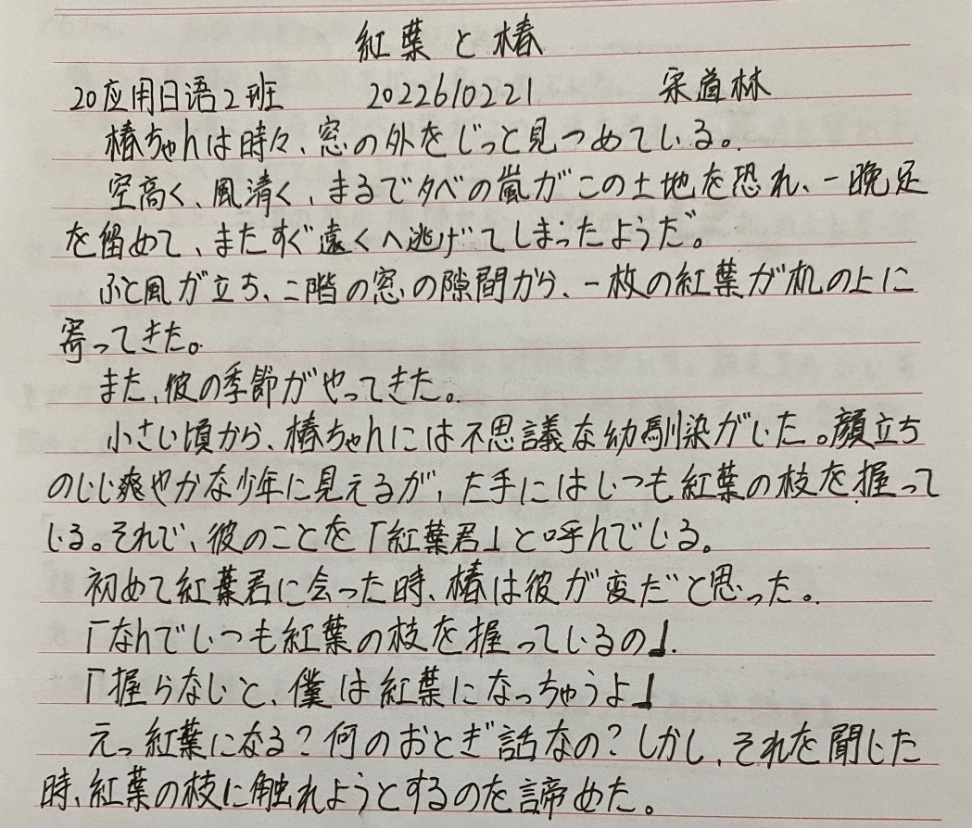 紅葉と椿
20应用日语2班 2022610221 宋道林
椿ちゃんは時々、窓の外をじっと見つめている。
空高く、風清く、まるで夕べの嵐がこの土地を恐れ、一晩足
を留めて、またすぐ遠くへ逃げてしまったようだ。
ふと風が立ち、二階の窓の隙間から、一枚の紅葉が机の上に
寄ってきた。
また、彼の季節がやってきた。
小さい頃から、椿ちゃんには不思議な幼馴染がいた。顔立ち
のいい爽やかな少年に見えるが、た手にはいつも紅葉の枝を握って
いる。それで、彼のことを「紅葉君」と呼んでいる。
初めて紅葉君に会った時、椿は彼が変だと思った。
「なんでいつも紅葉の枝を握っているの」.
「握らないと、僕は紅葉になっちゃうよ」
えっ紅葉になる？何のおとぎ話なの？しかし、それを聞いた
時、紅葉の枝に触れようとするのを諦めた。